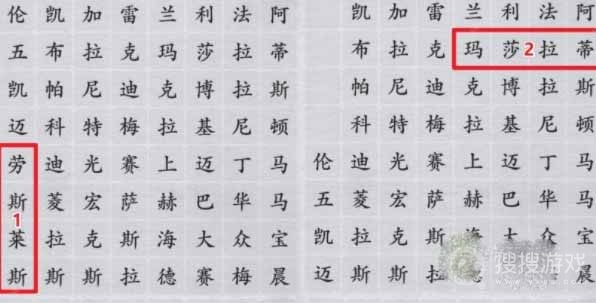 伦凯加雷兰利法阿
五布拉克玛莎拉蒂
凯帕尼迪克博拉斯
迈科特梅拉基尼顿
劳迪光赛上迈丁马
斯菱宏萨赫巴华马
莱拉克斯海大众宝
斯斯斯拉德赛梅晨
1
凯加雷兰利法阿
布拉克玛莎拉蒂
2
帕尼迪克博拉斯
科特梅拉基尼顿
伦迪光赛上迈丁马
五菱宏萨赫巴华马
凯拉克斯海大众宝
迈斯斯拉德赛梅晨
搜搜游戏